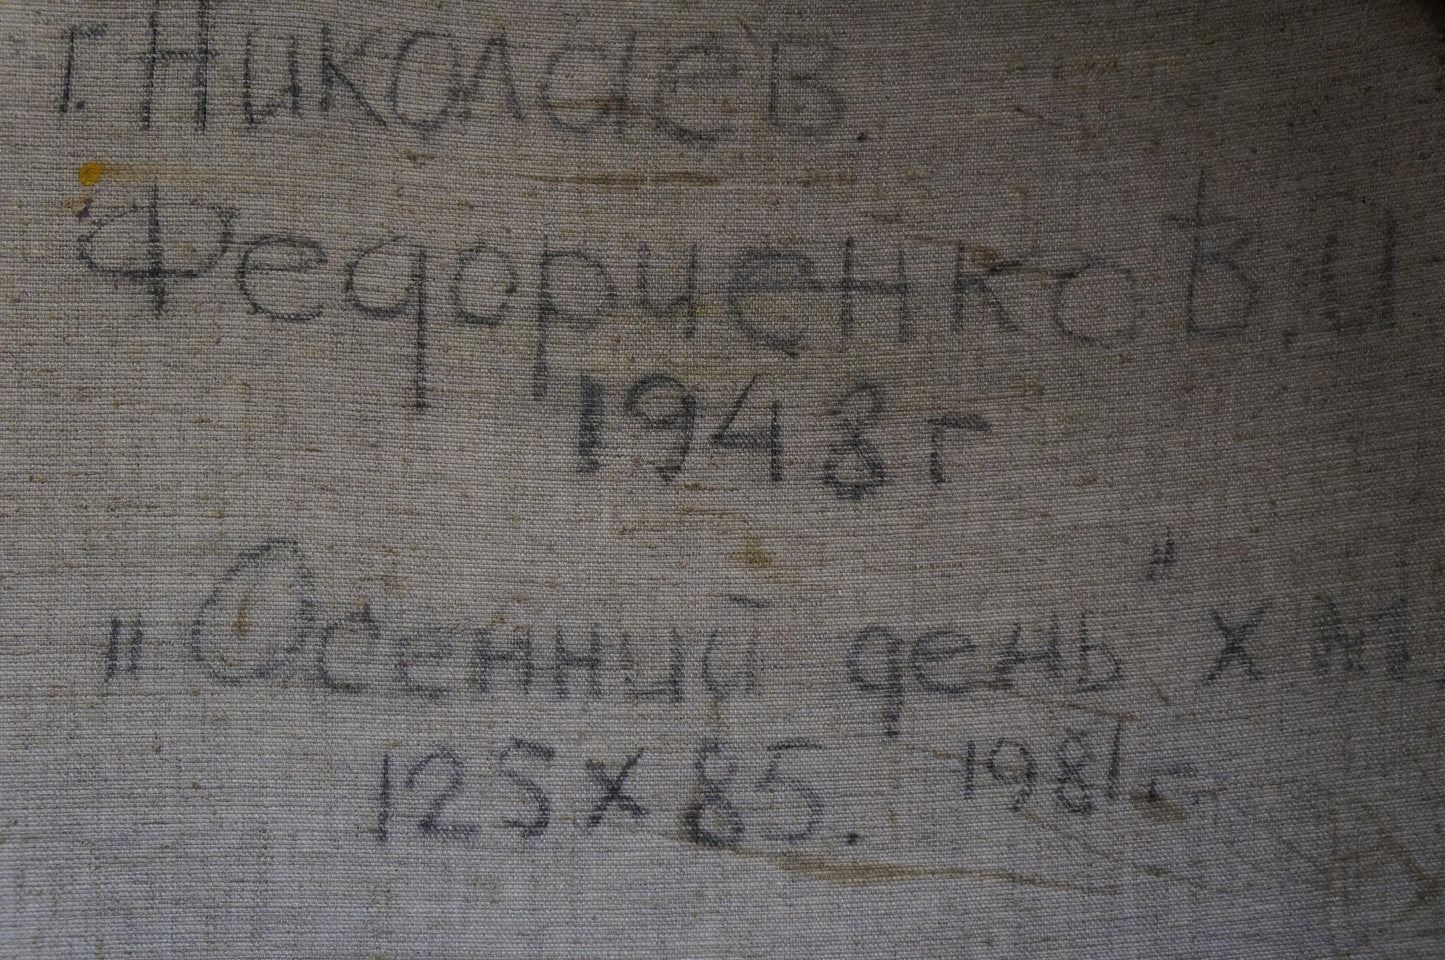 г. Николаев.
Федорченко В.И
1948 г
"Осенний день" х м.
125 х 85. 1981 г.